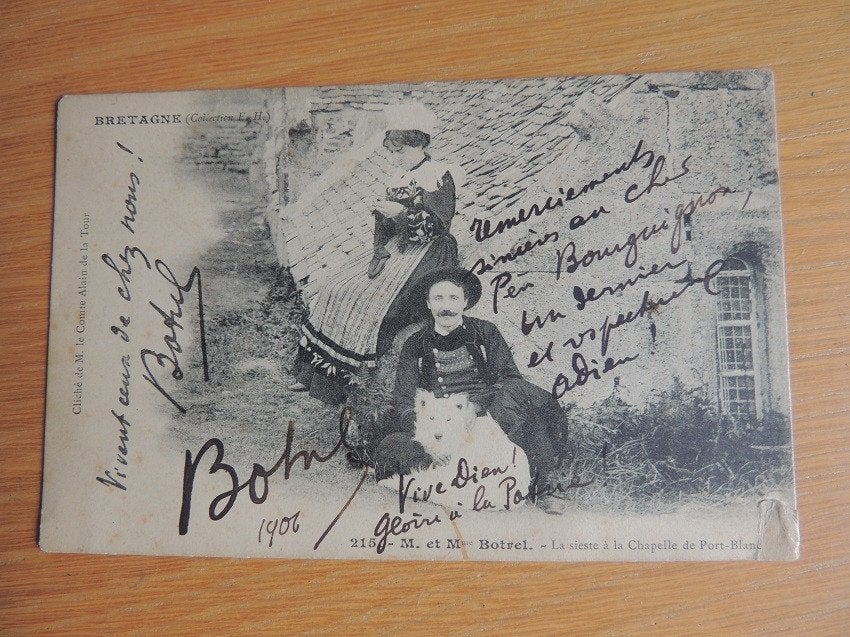 BRETAGNE (Collection E. H.)
Cliché de M. le Comte Alain de la Tour
Vivent ceux de chez nous!
Botrel
remerciements
sincères au cher
Bourguignon,
un dernier
et respectueux
adieu!
Botrel
1906
Vive Dieu!
gloire à la Patrie!
215 - M. et Mme Botrel. - La sieste à la Chapelle de Port-Blanc